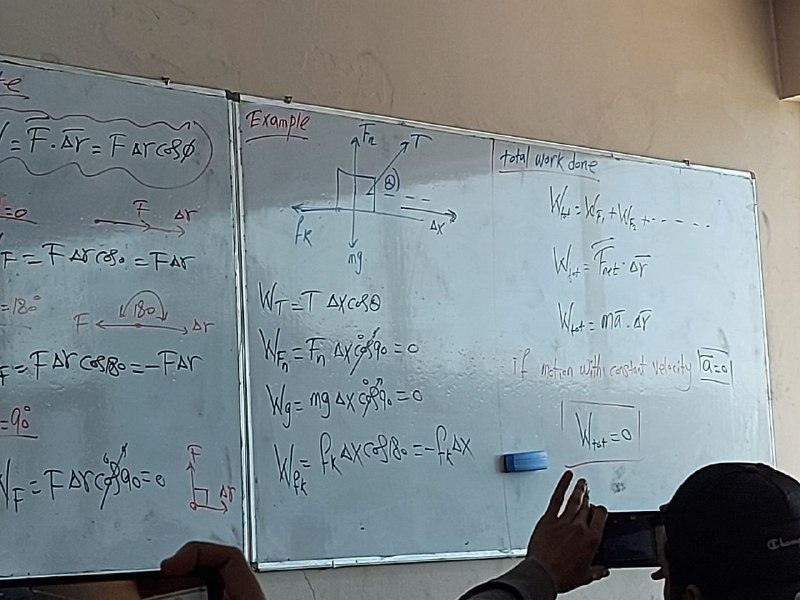 = F̅ · Δ̅r̅ = F Δr cosϕ
=0
F Δr
F = F Δr cos0 = F Δr
=180°
180
F Δr
F = F Δr cos180 = -F Δr
=90°
F
W_F = F Δr cos90 = 0
Δr
Example
Fn T
θ
fk Δx
mg
W_T = T Δx cosθ
W_Fn = Fn Δx cos90 = 0
Wg = mg Δx cos90 = 0
W_fk = fk Δx cos180 = -fk Δx
total work done
W_tot = W_F1 + W_F2 + - - - - -
W_tot = F̅net · Δ̅r̅
W_tot = ma̅ · Δ̅r̅
if motion with constant velocity |a̅=0|
W_tot = 0
Cham